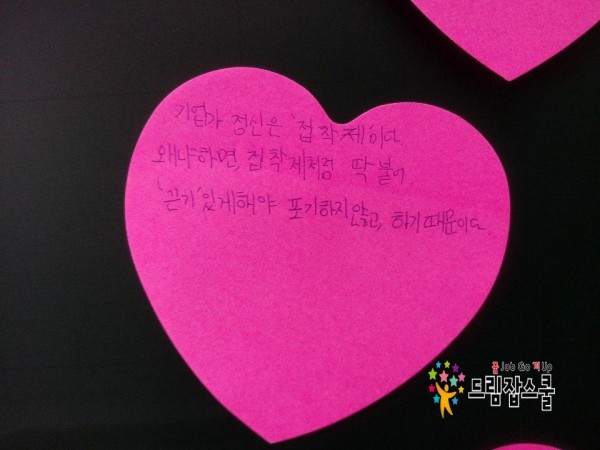 기업가 정신은 '접착제'이다
왜냐하면, 접착제처럼 딱 붙어
'끈기'있게해야 포기하지않고, 하기때문이다
꿈 Job Go 끼 Up
드림잡스쿨